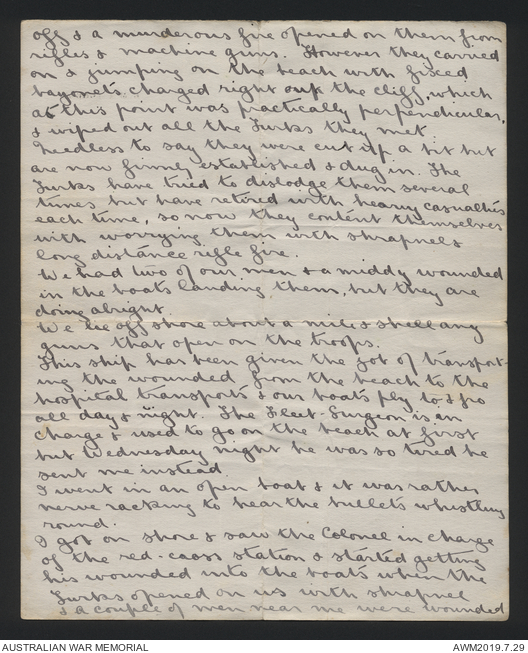 off & a murderous fire opened on them from
rifles & machine guns. However they carried
on & jumping on the beach with fixed
bayonets charged right up the cliff, which
at this point was practically perpendicular,
& wiped out all the Turks they met.
Needless to say they were cut up a bit but
are now firmly established & dug in. The
Turks have tried to dislodge them several
times but have retired with heavy casualties
each time, so now they content themselves
with worrying them with shrapnel &
long distance rifle fire.
We had two of our men & a middy wounded
in the boats landing them, but they are
doing alright.
We lie off shore about a mile & shell any
guns that open on the troops.
This ship has been given the job of transport-
ing the wounded from the beach to the
hospital transports & our boats ply to & fro
all day & night. The Fleet-Surgeon is in
charge & used to go on the beach at first
but Wednesday night he was so tired he
sent me instead.
I went in an open boat & it was rather
nerve racking to hear the bullets whistling
round.
I got on shore & saw the Colonel in charge
of the red-cross station & started getting
his wounded into the boats when the
Turks opened on us with shrapnel
& a couple of men near me were wounded
AUSTRALIAN WAR MEMORIAL
AWM2019.7.29